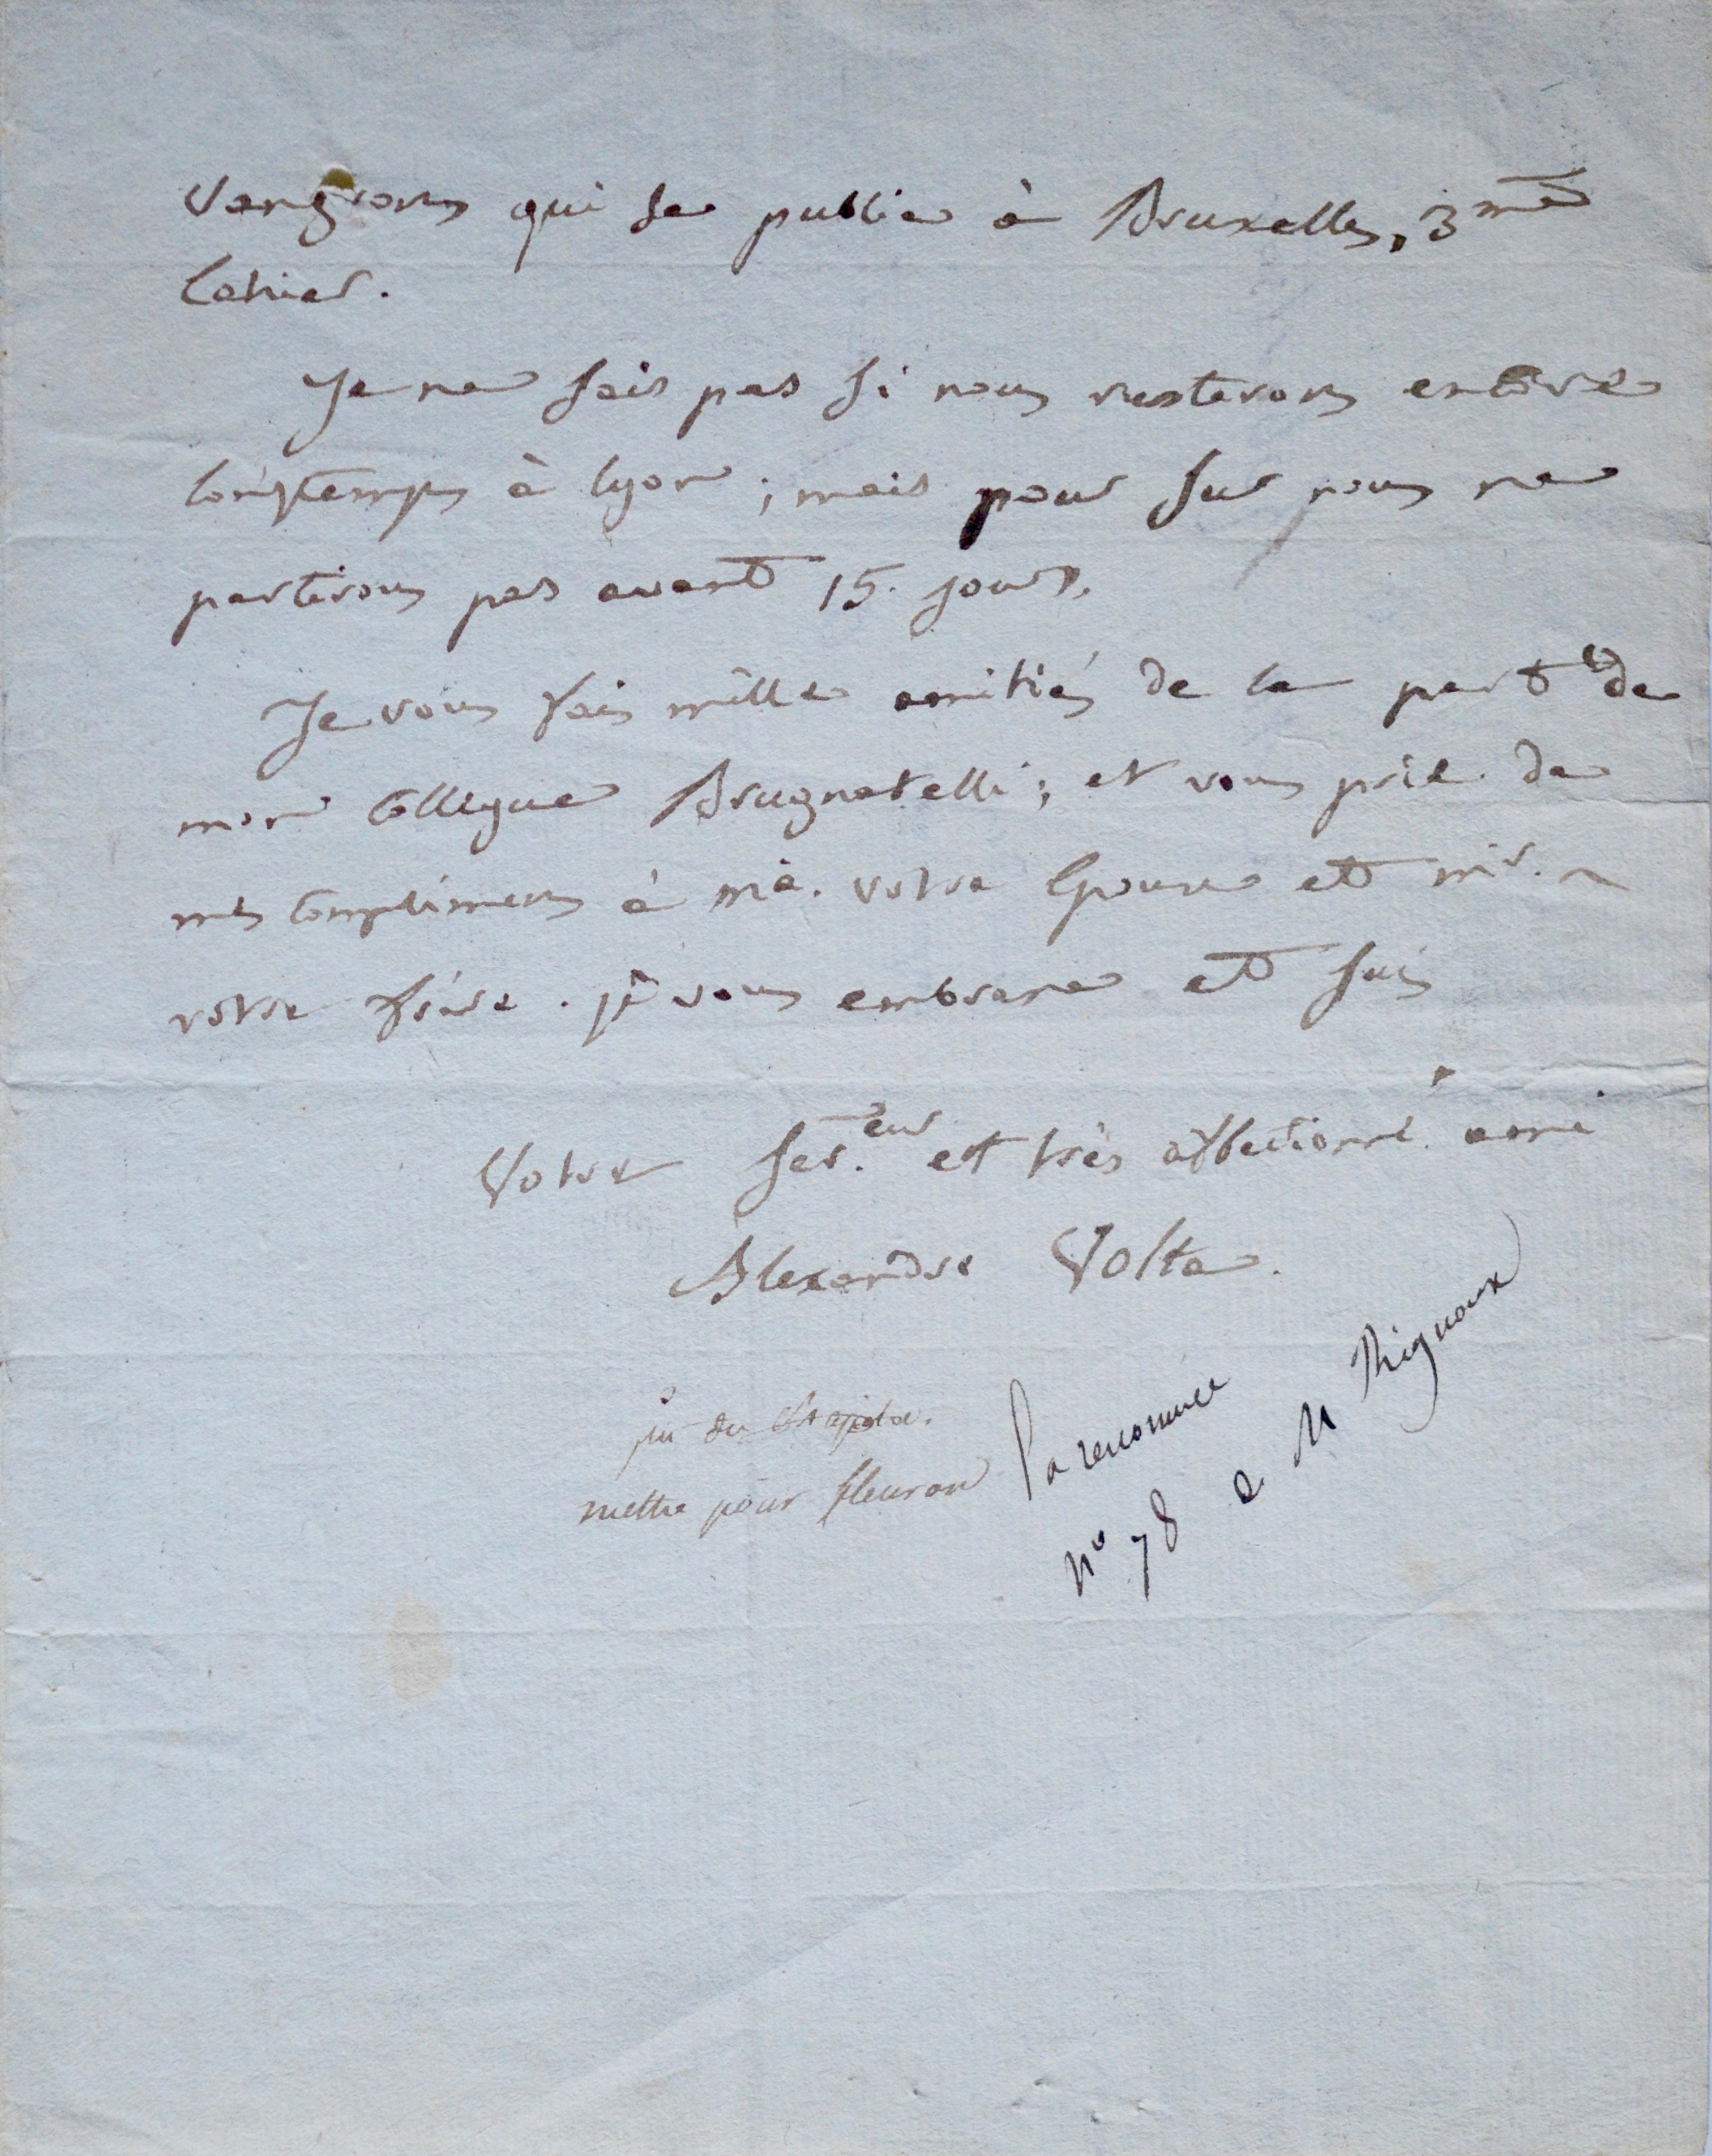 Vangrons qui se publie à Bruxelles, 3me
Cahier.
Je ne sais pas si nous resterons encore
longtemps à Lyon ; mais pour sur nous ne
partirons pas avant 15. jours.
Je vous fais mille amitiés de la part de
mon Collegue Brugnatelli ; et vous prie de
mes complimens à ma. votre Epouse et mr.
votre frère. je vous embrasse et suis
Votre ser.eur et très affectionné ami
Alexandre Volta.
fin du
mettre pour fleuron la renommée
No 78 a M Rignoux